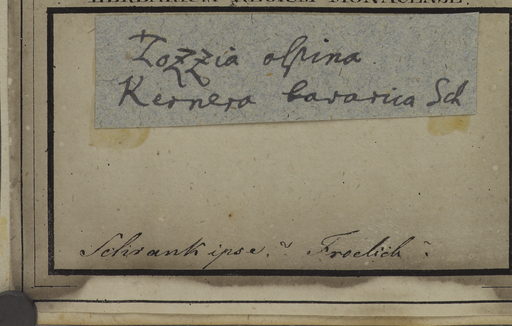 HERBARIUM REGIUM MONACENSE.
Tozzia alpina
Kernera bavarica Sch
Schrank ipse. Froelich